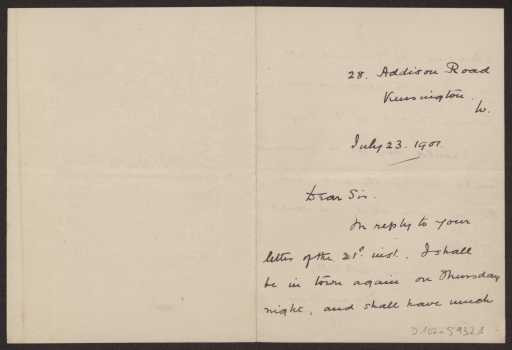 28. Addison Road
Kensington.
W.
July 23. 1901.
Dear Sir.
In reply to your
letter of the 21st inst. I shall
be in town again on Thursday
night, and shall have much